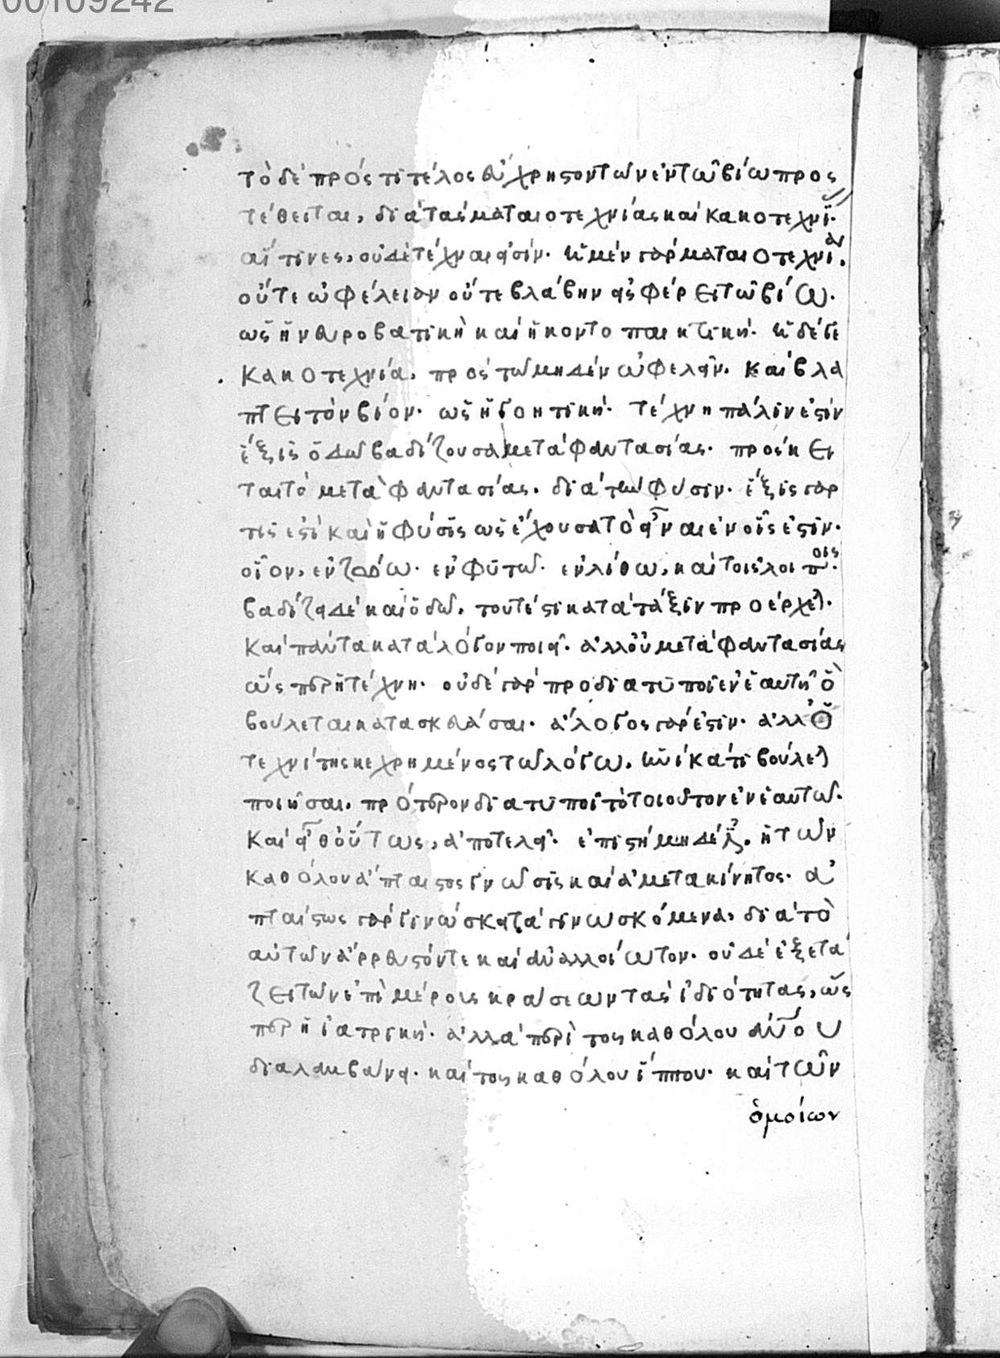 00109242
τὸ δὲ πρός τι τέλος εὔχρηστον τῶν ἐν τῷ βίῳ προς
τέθειται, διὰ τὰς ματαιοτεχνίας καὶ κακοτεχνί
αἵτινες, οὐδὲ τέχναι εἰσίν. ἡ μὲν γὰρ ματαιοτεχνία.
οὔτε ὠφέλειαν οὔτε βλάβην εἰσφέρει τῷ βίῳ.
ὡς ἡ νευροβατικὴ καὶ ἡ κοντοπαικτική. ἡ δέ γε
κακοτεχνία, πρὸς τῷ μηδὲν ὠφελεῖν. καὶ βλά
πτει τὸν βίον. ὡς ἡ γοητική. τέχνη πάλιν ἐστὶν
ἕξις ὁδῷ βαδίζουσα μετὰ φαντασίας. πρόσκει
ται τὸ μετὰ φαντασίας, διὰ τὴν φύσιν. ἕξις γάρ
τις ἐστὶ καὶ ἡ φύσις ὡς ἔχουσα τὸ εἶναι ἐν οἷς ἐστιν.
οἷον, ἐν ζώῳ. ἐν φυτῷ. ἐν λίθῳ, καὶ τοῖς λοιποῖς.
βαδίζει δὲ καὶ ὁδῷ, τουτέστι κατὰ τάξιν προέρχεται.
καὶ πάντα κατὰ λόγον ποιεῖ. ἀλλ οὐ μετὰ φαντασίας
ὥσπερ ἡ τέχνη. οὐδὲ γὰρ προδιατυποῖ ἐν ἑαυτῇ ὃ
βούλεται κατασκευάσαι. ἄλογος γάρ ἐστιν. ἀλλ ὁ
τεχνίτης κεχρημένος τῷ λόγῳ, ἡνίκα τι βούλεται
ποιῆσαι, πρότερον διατυποῖ τὸ τοιοῦτον ἐν ἑαυτῷ.
καὶ εἶθ οὕτως, ἀποτελεῖ. ἐπιστήμη δέ ἐστιν, ἡ τῶν
καθόλου ἄπταιστος γνῶσις καὶ ἀμετακίνητος. ἀ
πταίστως γὰρ γινώσκει τὰ γινωσκόμενα, διὰ τὸ
αὐτῶν ἄρρευστόν τε καὶ ἀναλλοίωτον. οὐδὲ ἐξετά
ζει τῶν ἐπὶ μέρους κράσεων τὰς ἰδιότητας, ὥς
περ ἡ ἰατρική. ἀλλὰ περὶ τοῦ καθόλου ἀνθρώπου
διαλαμβάνει. καὶ τοῦ καθόλου ἵππου. καὶ τῶν
ὁμοίων